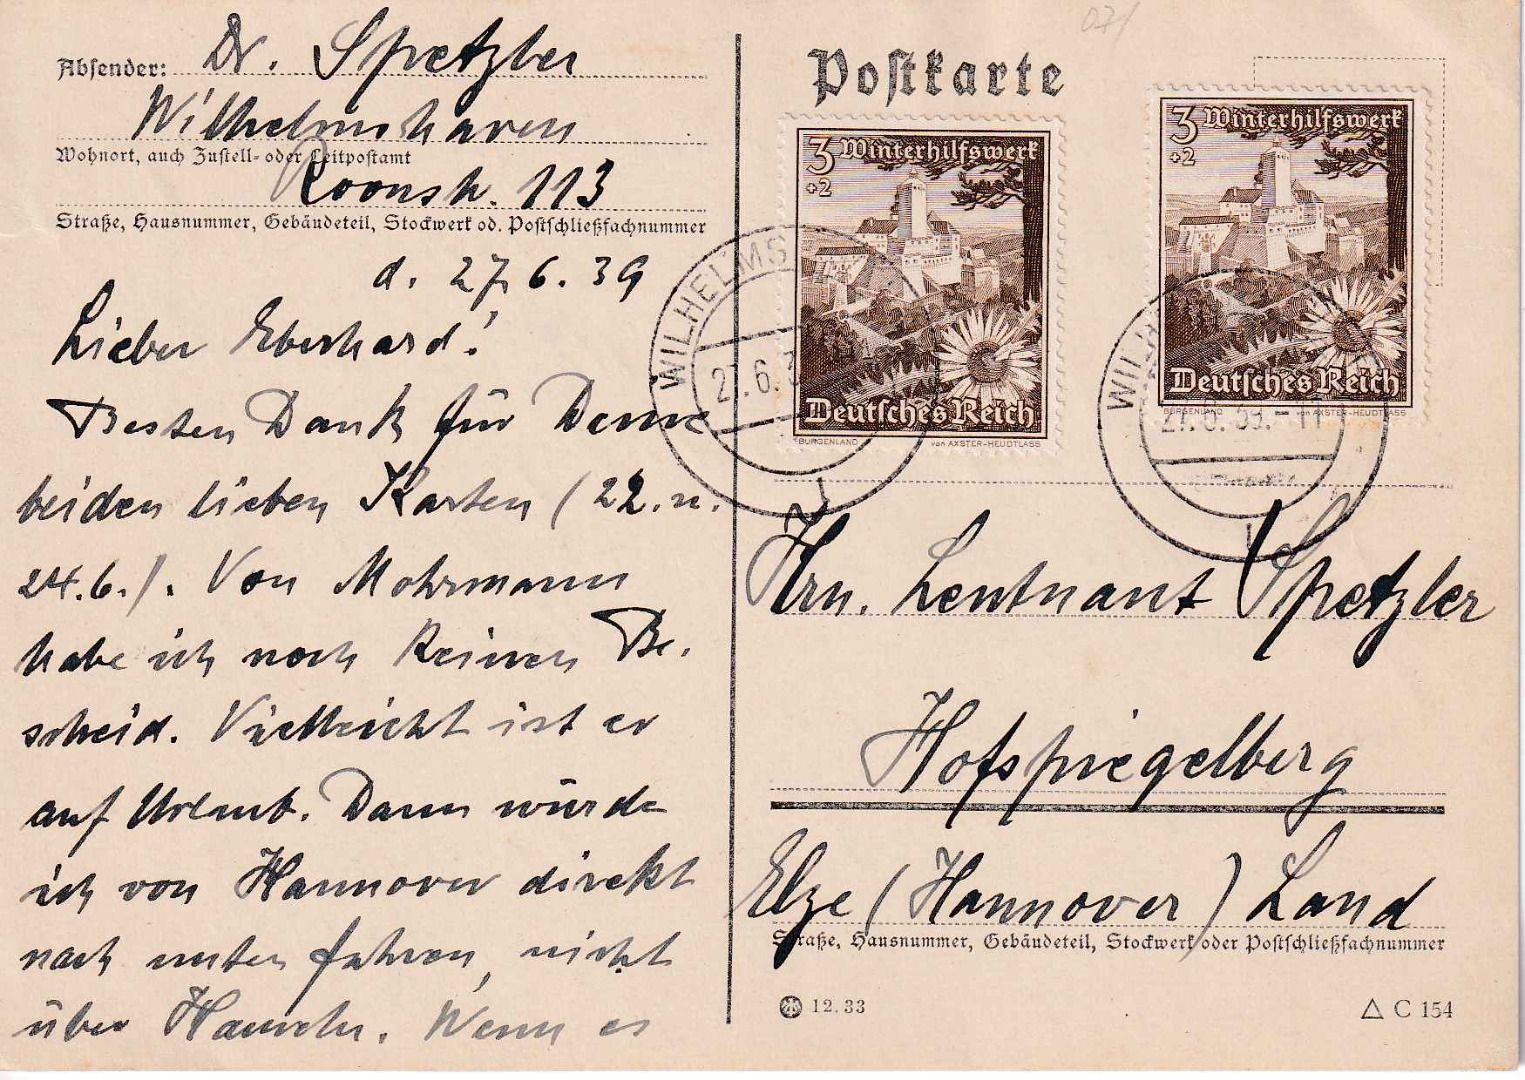 071
Absender: Dr. Spetzler
Wilhelmshaven
Wohnort, auch Zustell- oder Leitpostamt
Roonstr. 113
Straße, Hausnummer, Gebäudeteil, Stockwerk od. Postschließfachnummer
d. 27.6.39
Lieber Eberhard!
Besten Dank für Deine
beiden lieben Karten (22. u.
24.6.). Von Mohrmann
habe ich noch keinen Be-
scheid. Vielleicht ist er
auf Urlaub. Dann würde
ich von Hannover direkt
nach unten fahren, nicht
über Hameln. Wenn es
Postkarte
3 Winterhilfswerk
+2
Deutsches Reich
BURGENLAND von AXSTER-HEUDTLASS
3 Winterhilfswerk
+2
Deutsches Reich
BURGENLAND von AXSTER-HEUDTLASS
WILHELMS
27.6.3
WILH
27.6.39.-11
Hrn. Leutnant Spetzler
Hofspiegelberg
Elze (Hannover) Land
Straße, Hausnummer, Gebäudeteil, Stockwerk oder Postschließfachnummer
12.33
C 154